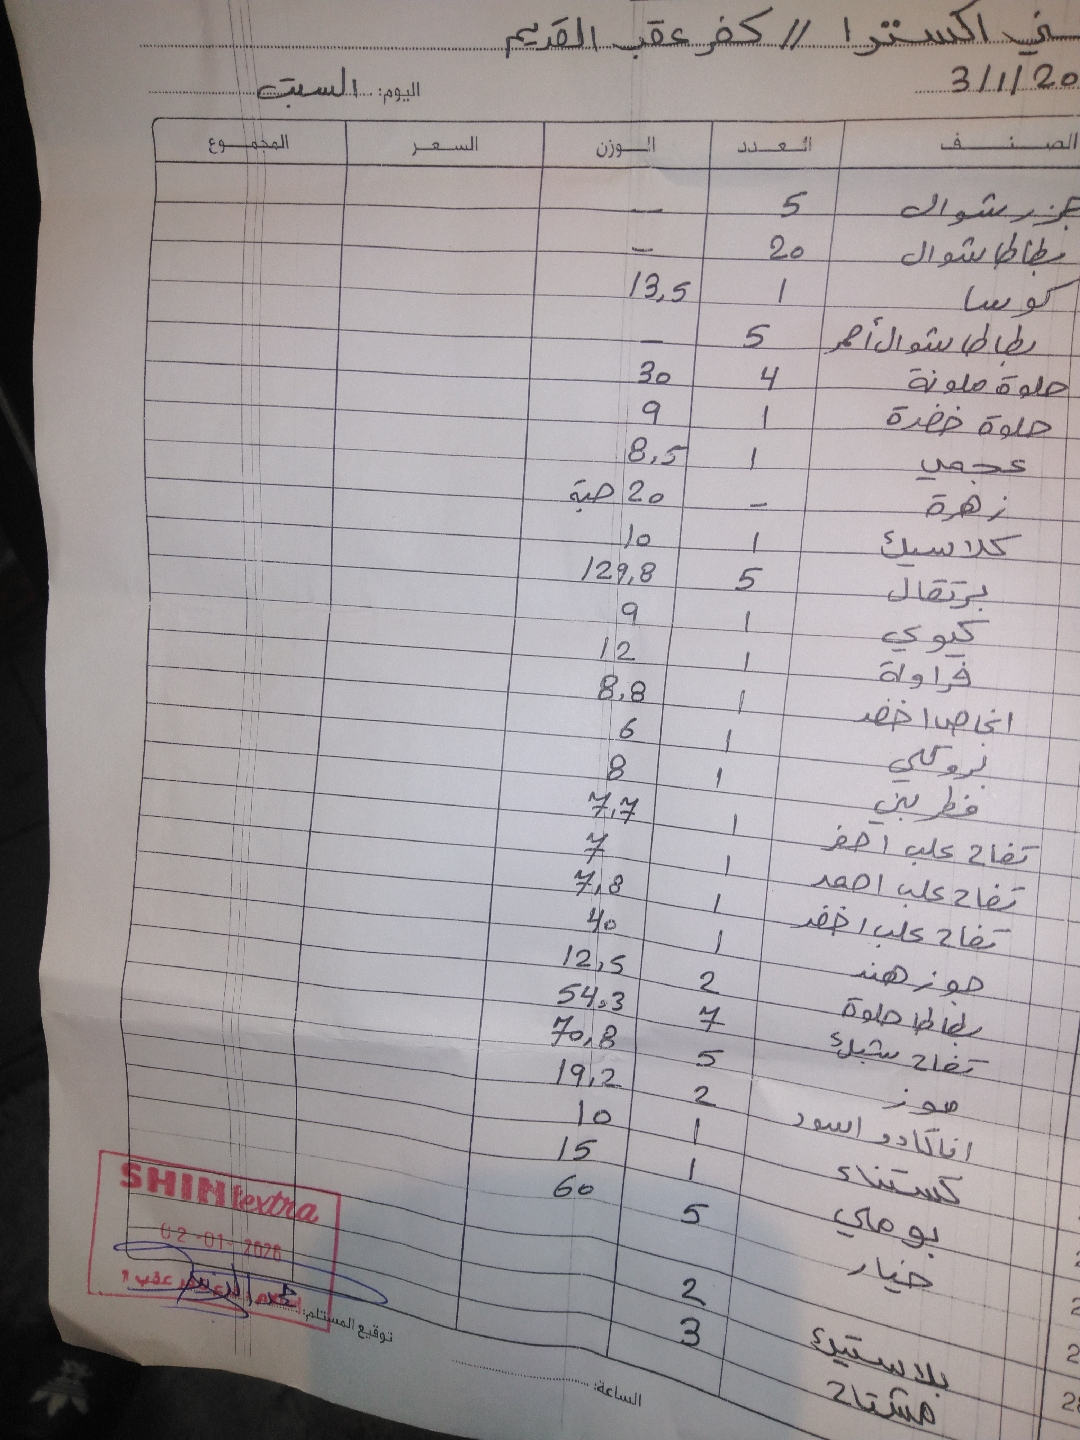 شني اكسترا // كفر عقب القديم
اليوم: السبت 3/1/20
الصنف العدد الوزن السعر المجموع
جزر شوال 5 —
بطاطا شوال 20 —
كوسا 1 13,5
بطاطا شوال أحمر 5 —
حلوة ملونة 4 30
حلوة خضرة 1 9
عجمي 1 8,5
زهرة - 20 حبة
كلاسيك 1 10
برتقال 5 129,8
كيوي 1 9
فراولة 1 12
انجاص اخضر 1 8,8
بروكلي 1 6
فطر بني 1 8
تفاح علب اصفر 1 7,7
تفاح علب احمر 1 7
تفاح علب اخضر 1 7,8
جوز هند 1 40
بطاطا حلوة 2 12,5
تفاح شبك 7 54,3
موز 5 70,8
افاكادو اسود 2 19,2
كستناء 1 10
بوملي 1 15
خيار 5 60
بلاستيك 2
مشتاح 3
SHINI extra
02-01-2026
توقيع المستلم:
الساعة: